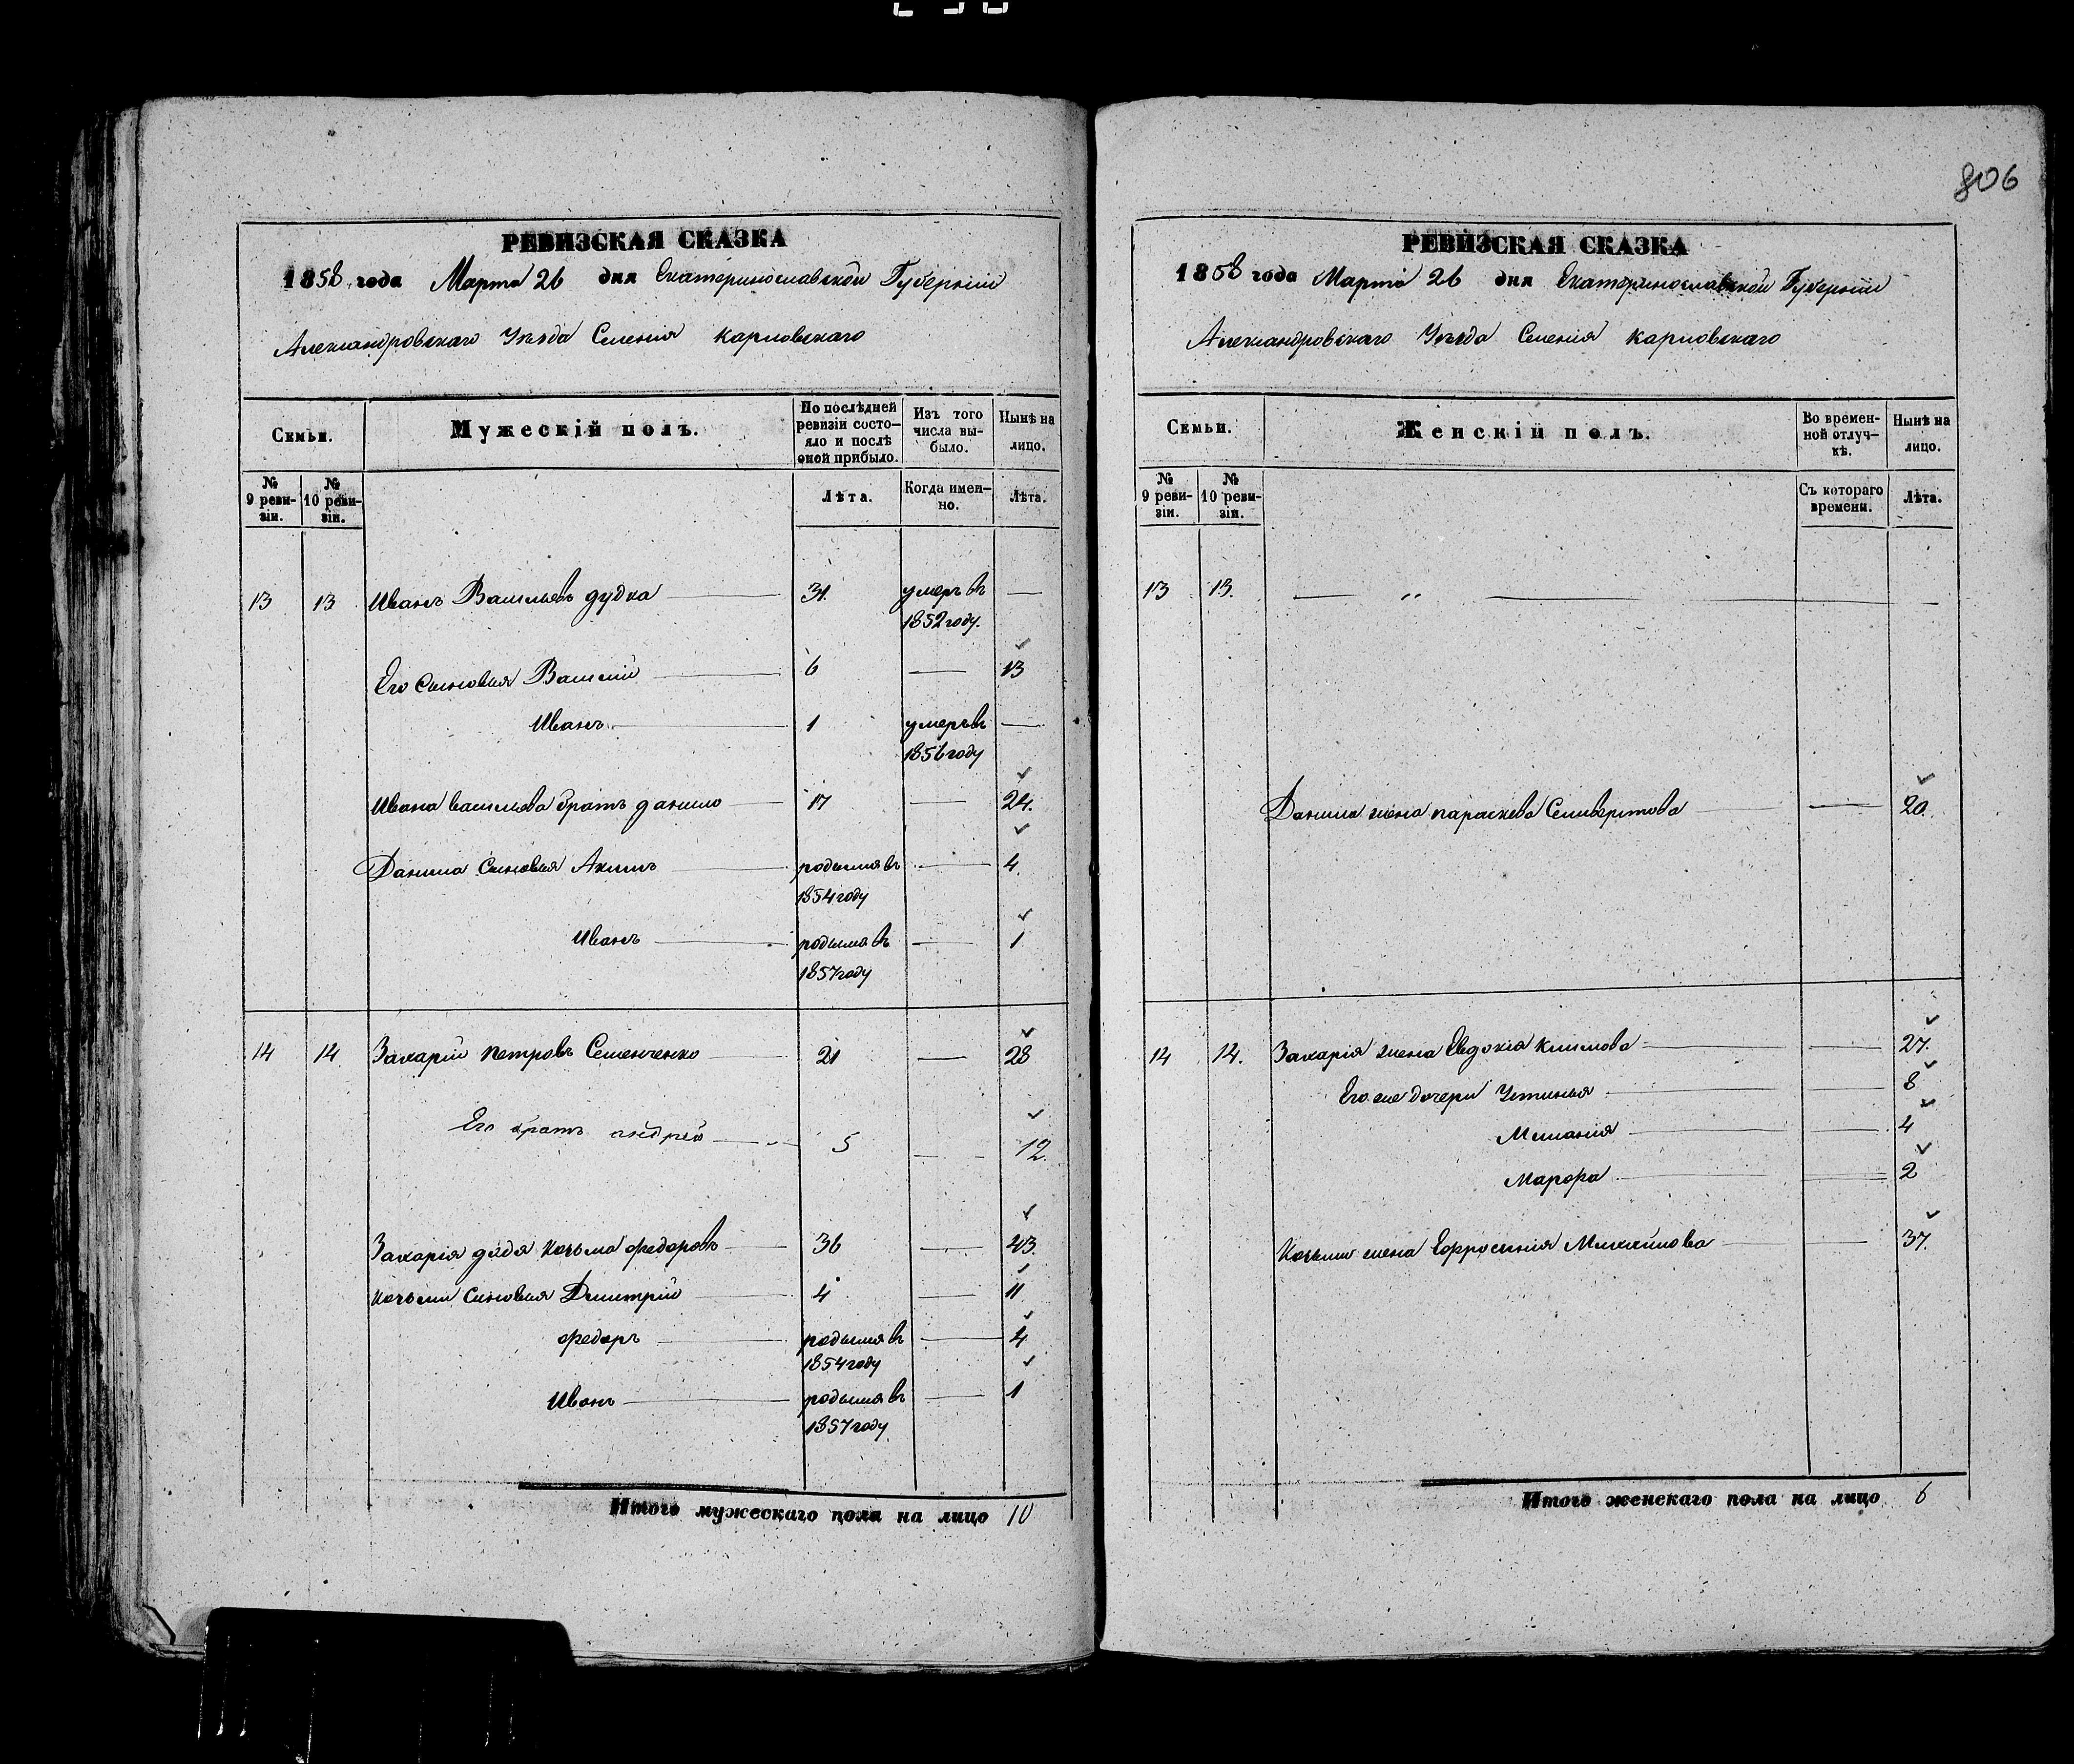 806
РЕВИЗСКАЯ СКАЗКА
1858 года Марта 26 дня Екатеринославской Губерніи
Александровскаго Уѣзда Селенія Карловскаго
Семьи.
Мужескій полъ.
По послѣдней ревизіи состояло и послѣ оной прибыло.
Изъ того числа выбыло.
Нынѣ на лицо.
№ 9 ревизіи.
№ 10 ревизіи.
Лѣта.
Когда именно.
Лѣта.
13 13 Иванъ Васильевъ Дудка 31. умеръ въ —
1852 году.
Его сыновья Василій 6 — 13
Иванъ 1 умеръ въ —
1856 году
Ивана Васильева братъ Данило 17 — 24.
Данила сыновья Акимъ родился въ — 4.
1854 году
Иванъ родился въ — 1
1857 году
14 14. Захарій Петровъ Семенченко 21 — 28
Его братъ Андрей 5 — 12.
Захарія дядя Козьма Федоровъ 36 — 43.
Козьми сыновья Дмитрій 4 — 11
Федоръ родился въ — 4
1854 году
Иванъ родился въ — 1
1857 году
Итого мужескаго пола на лицо 10
РЕВИЗСКАЯ СКАЗКА
1858 года Марта 26 дня Екатеринославской Губерніи
Александровскаго Уѣзда Селенія Карловскаго
Семьи.
Женскій полъ.
Во временной отлучкѣ.
Нынѣ на лицо.
№ 9 ревизіи.
№ 10 ревизіи.
Съ котораго времени.
Лѣта.
13 13. — „ —
Данила жена Параскева Селиверстова — 20.
14 14. Захарія жена Евдокія Климова — 27.
Его же дочери Устинья — 8
Миланія — 4
Марфа — 2
Козьми жена Ефросинія Михайлова — 37.
Итого женскаго пола на лицо 6